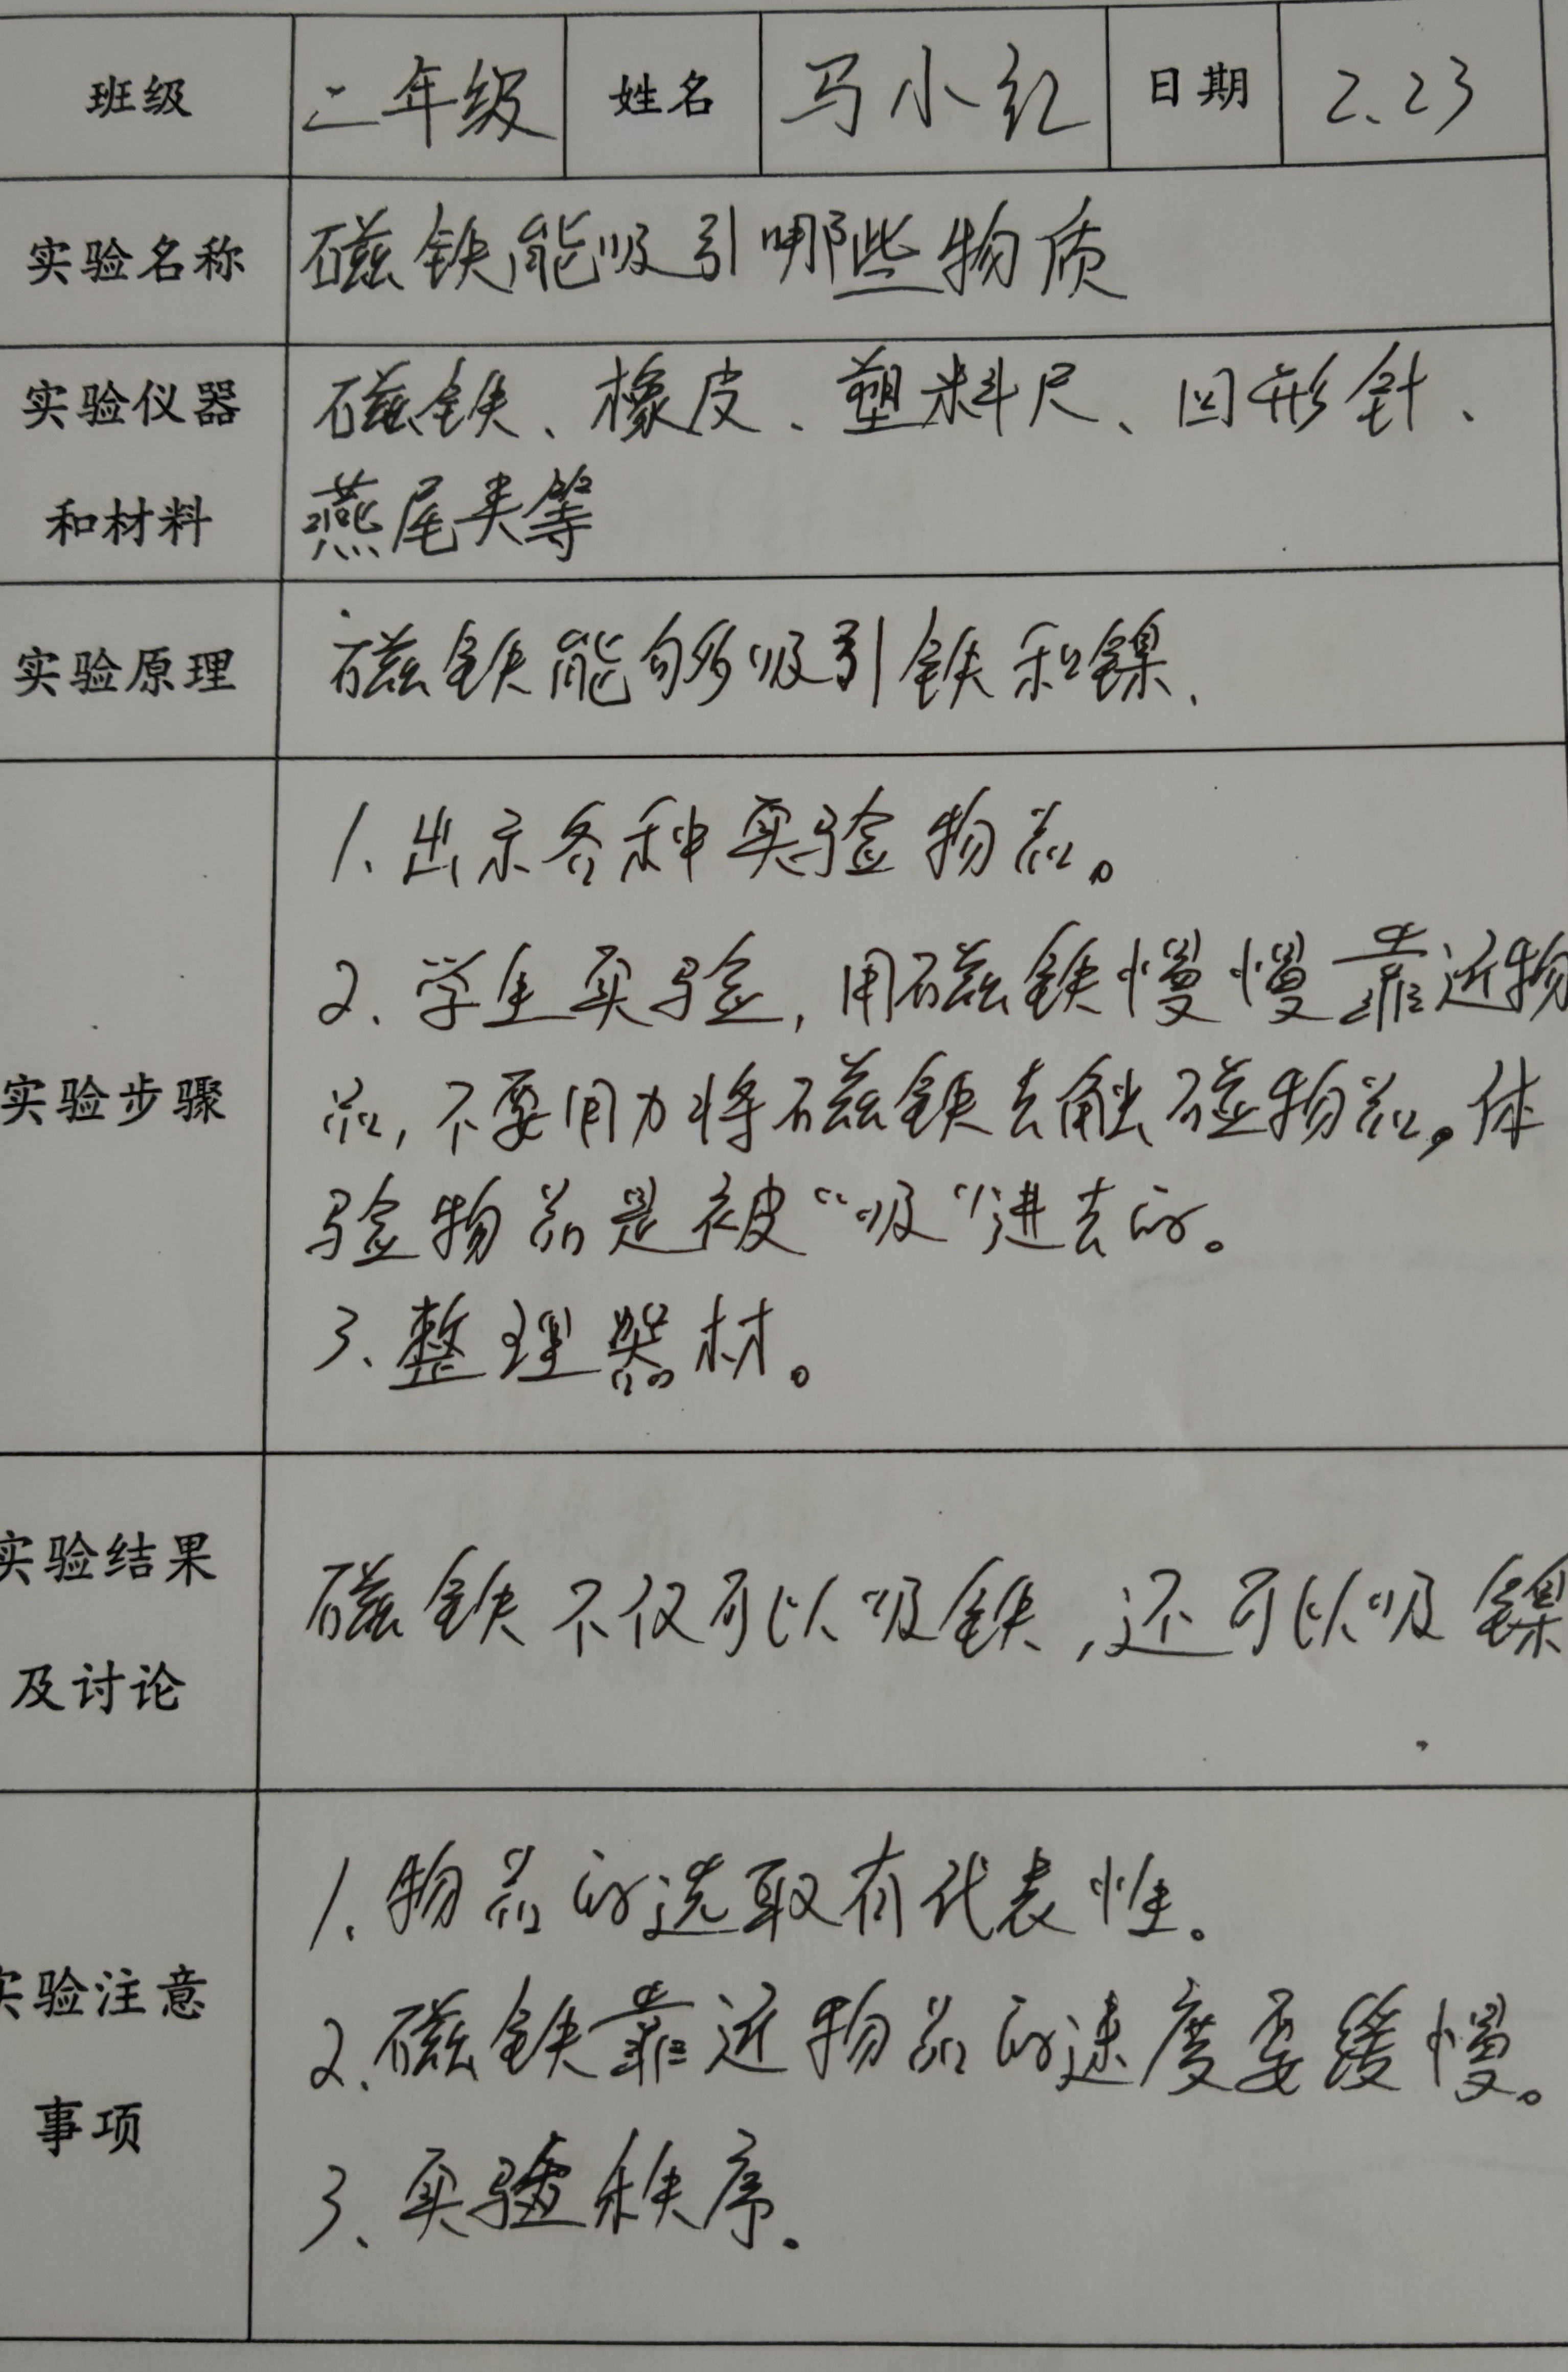 班级 二年级 姓名 马小红 日期 2.23
实验名称 磁铁能吸引哪些物质
实验仪器 磁铁、橡皮、塑料尺、回形针、
和材料 燕尾夹等
实验原理 磁铁能够吸引铁和镍.
1.出示各种实验物品。
2.学生实验,用磁铁慢慢靠近物
实验步骤 品,不要用力将磁铁去触碰物品。体
验物品是被“吸”进去的。
3.整理器材。
实验结果
磁铁不仅可以吸铁,还可以吸镍
及讨论 .
1.物品的选取有代表性。
实验注意
2.磁铁靠近物品的速度要缓慢。
事项
3.实验秩序.